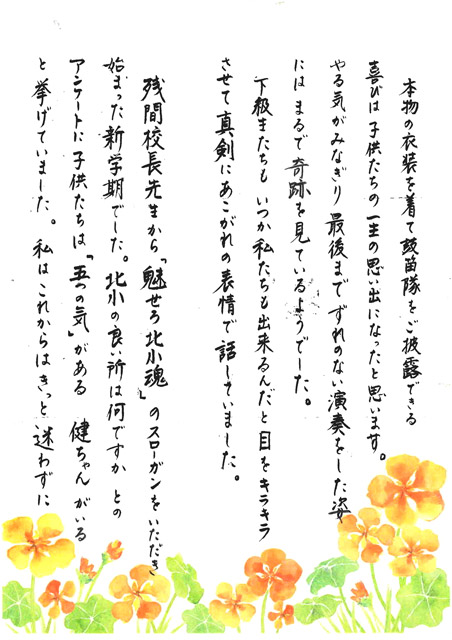 本物の衣装を着て鼓笛隊をご披露できる
喜びは子供たちの一生の思い出になったと思います。
やる気がみなぎり最後までずれのない演奏をした姿
にはまるで奇跡を見ているようでした。
下級生たちもいつか私たちも出来るんだと目をキラキラ
させて真剣にあこがれの表情で話していました。
残間校長先生から「魅せろ北小魂」のスローガンをいただき
始まった新学期でした。北小の良い所は何ですかとの
アンケートに子供たちは「五つの気」がある 健ちゃんがいる
と挙げていました。私はこれからはきっと迷わずに